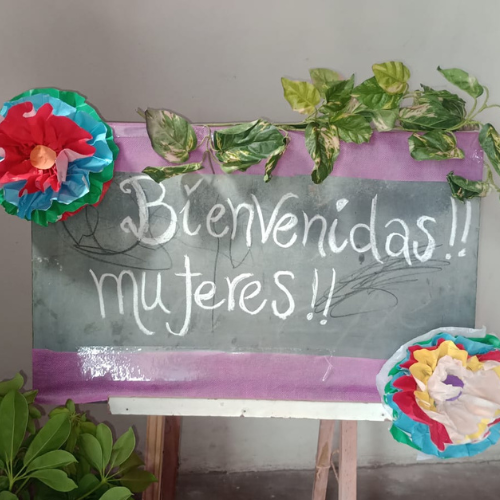 Bienvenidas!!
mujeres!!